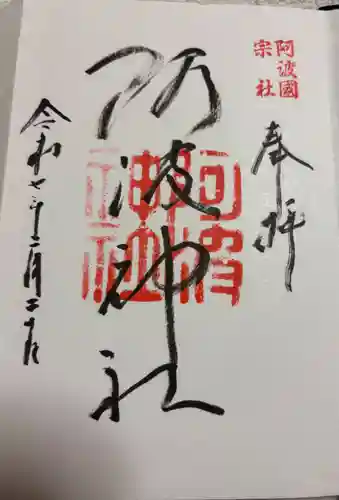 阿波國
宗社
奉拝
阿波神社
阿波
神社
令和七年一月二十日